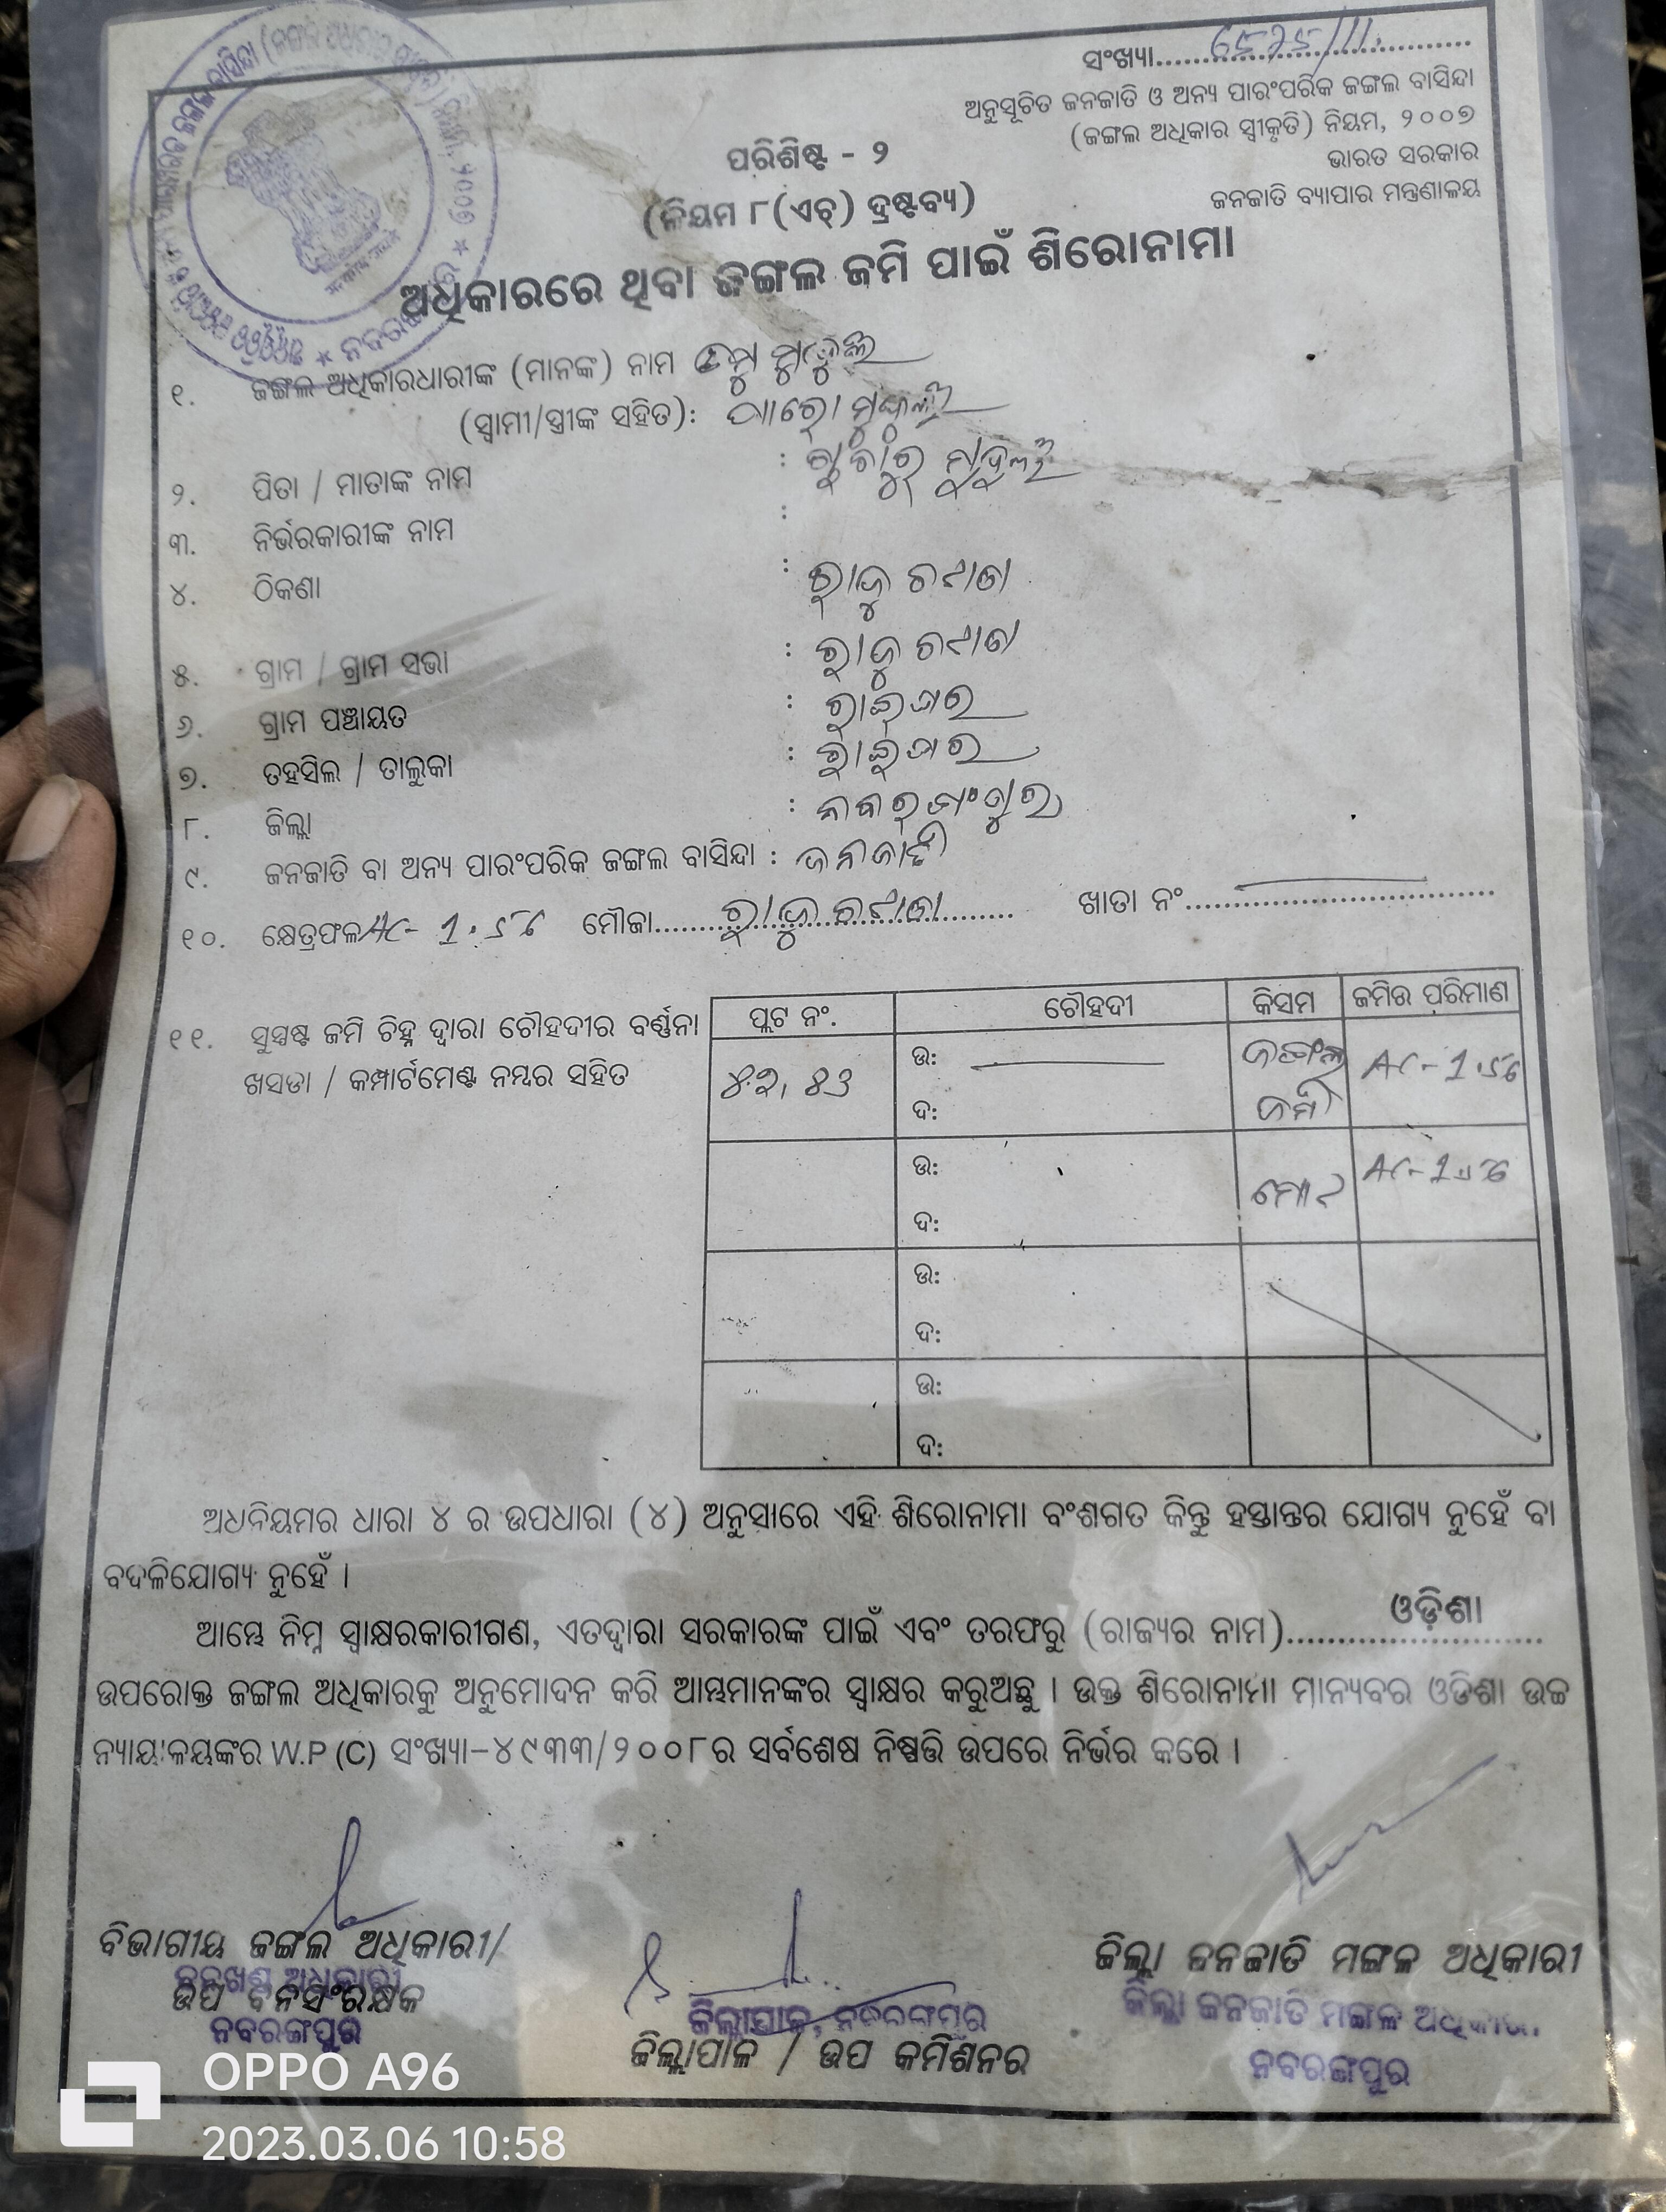 ସଂଖ୍ୟା
ଅନୁସୂଚିତ ଜନଜାତି ଓ ଅନ୍ୟ ପାରଂପରିକ ଜଙ୍ଗଲ ବାସିନ୍ଦା
(ଜଙ୍ଗଲ ଅଧିକାର ସ୍ୱୀକୃତି) ନିୟମ, ୨୦୦୭
ଭାରତ ସରକାର
ଜନଜାତି ବ୍ୟାପାର ମନ୍ତ୍ରଣାଳୟ
ପରିଶିଷ୍ଟ - ୨
(ନିୟମ ୮(ଏଚ୍) ଦ୍ରଷ୍ଟବ୍ୟ)
ଅଧିକାରରେ ଥିବା ଜଙ୍ଗଲ ଜମି ପାଇଁ ଶିରୋନାମା
୧. ଜଙ୍ଗଲ ଅଧିକାରଧାରୀଙ୍କ (ମାନଙ୍କ) ନାମ
(ସ୍ୱାମୀ/ସ୍ତ୍ରୀଙ୍କ ସହିତ):
୨. ପିତା / ମାତାଙ୍କ ନାମ :
୩. ନିର୍ଭରକାରୀଙ୍କ ନାମ :
୪. ଠିକଣା :
୫. ଗ୍ରାମ / ଗ୍ରାମ ସଭା :
୬. ଗ୍ରାମ ପଞ୍ଚାୟତ : ରାଇଘର
୭. ତହସିଲ / ତାଲୁକା : ରାଇଘର
୮. ଜିଲ୍ଲା : ନବରଙ୍ଗପୁର
୯. ଜନଜାତି ବା ଅନ୍ୟ ପାରଂପରିକ ଜଙ୍ଗଲ ବାସିନ୍ଦା : ଜନଜାତି
୧୦. କ୍ଷେତ୍ରଫଳ AC- 1.56 ମୌଜା ଖାତା ନଂ
୧୧. ସୁସ୍ପଷ୍ଟ ଜମି ଚିହ୍ନ ଦ୍ୱାରା ଚୌହଦୀର ବର୍ଣ୍ଣନା
ଖସଡା / କମ୍ପାର୍ଟମେଣ୍ଟ ନମ୍ବର ସହିତ
ପ୍ଲଟ ନଂ. ଚୌହଦୀ କିସମ ଜମିର ପରିମାଣ
୪୨, ୪୩ ଉ: ଜଙ୍ଗଲ AC-1.56
ଦ: ଜମି
ଉ: ମୋଟ AC-1.56
ଦ:
ଉ:
ଦ:
ଉ:
ଦ:
ଅଧିନିୟମର ଧାରା ୪ ର ଉପଧାରା (୪) ଅନୁସାରେ ଏହି ଶିରୋନାମା ବଂଶଗତ କିନ୍ତୁ ହସ୍ତାନ୍ତର ଯୋଗ୍ୟ ନୁହେଁ ବା
ବଦଳିଯୋଗ୍ୟ ନୁହେଁ ।
ଆମ୍ଭେ ନିମ୍ନ ସ୍ୱାକ୍ଷରକାରୀଗଣ, ଏତଦ୍ୱାରା ସରକାରଙ୍କ ପାଇଁ ଏବଂ ତରଫରୁ (ରାଜ୍ୟର ନାମ) ଓଡ଼ିଶା
ଉପରୋକ୍ତ ଜଙ୍ଗଲ ଅଧିକାରକୁ ଅନୁମୋଦନ କରି ଆମ୍ଭମାନଙ୍କର ସ୍ୱାକ୍ଷର କରୁଅଛୁ । ଉକ୍ତ ଶିରୋନାମା ମାନ୍ୟବର ଓଡିଶା ଉଚ୍ଚ
ନ୍ୟାୟାଳୟଙ୍କର W.P (C) ସଂଖ୍ୟା-୪୯୩୩/୨୦୦୮ର ସର୍ବଶେଷ ନିଷ୍ପତ୍ତି ଉପରେ ନିର୍ଭର କରେ ।
ବିଭାଗୀୟ ଜଙ୍ଗଲ ଅଧିକାରୀ/
ବନଖଣ୍ଡ ଅଧିକାରୀ
ଉପ ବନସଂରକ୍ଷକ
ନବରଙ୍ଗପୁର
ଜିଲ୍ଲାପାଳ, ନବରଙ୍ଗପୁର
ଜିଲ୍ଲାପାଳ / ଉପ କମିଶନର
ଜିଲ୍ଲା ଜନଜାତି ମଙ୍ଗଳ ଅଧିକାରୀ
ଜିଲ୍ଲା ଜନଜାତି ମଙ୍ଗଳ ଅଧିକାରୀ
ନବରଙ୍ଗପୁର
OPPO A96
2023.03.06 10:58